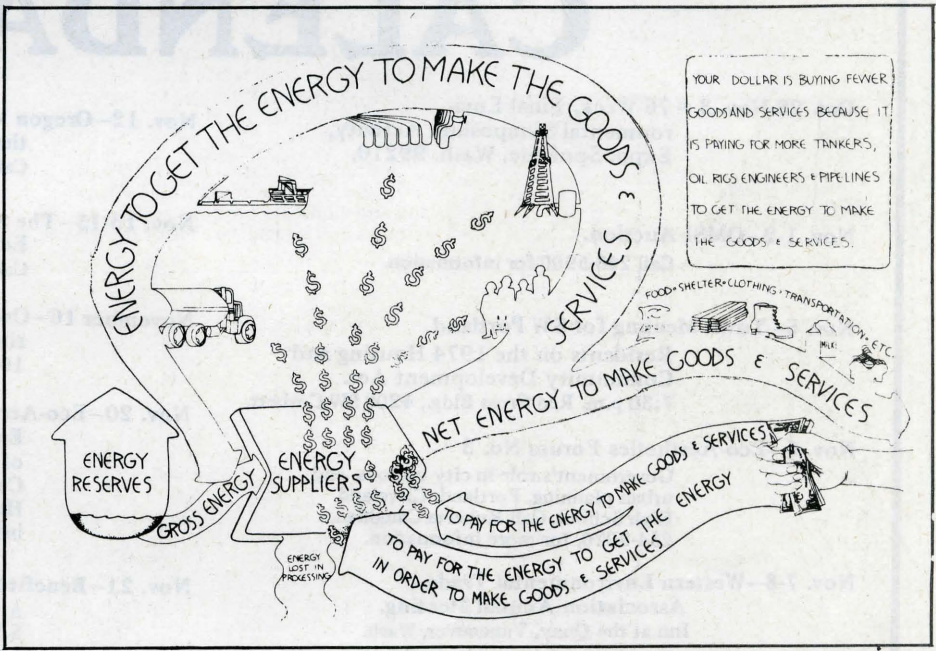 ENERGY TO GET THE ENERGY TO MAKE THE GOODS & SERVICES
YOUR DOLLAR IS BUYING FEWER
GOODS AND SERVICES BECAUSE IT
IS PAYING FOR MORE TANKERS,
OIL RIGS ENGINEERS & PIPELINES
TO GET THE ENERGY TO MAKE
THE GOODS & SERVICES.
FOOD • SHELTER • CLOTHING • TRANSPORTATION • ETC.
MILK
NET ENERGY TO MAKE GOODS & SERVICES
ENERGY
RESERVES
GROSS ENERGY
ENERGY
SUPPLIERS
ENERGY
LOST IN
PROCESSING
TO PAY FOR THE ENERGY TO MAKE GOODS & SERVICES
TO PAY FOR THE ENERGY TO GET THE ENERGY
IN ORDER TO MAKE GOODS & SERVICES